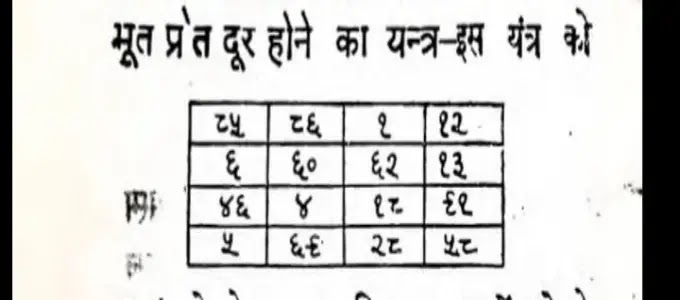 भूत प्रेत दूर होने का यन्त्र-इस यंत्र को
८५ ८६ १ १२
६ ६० ६२ १३
४६ ४ १८ ९१
५ ६९ २८ ५८